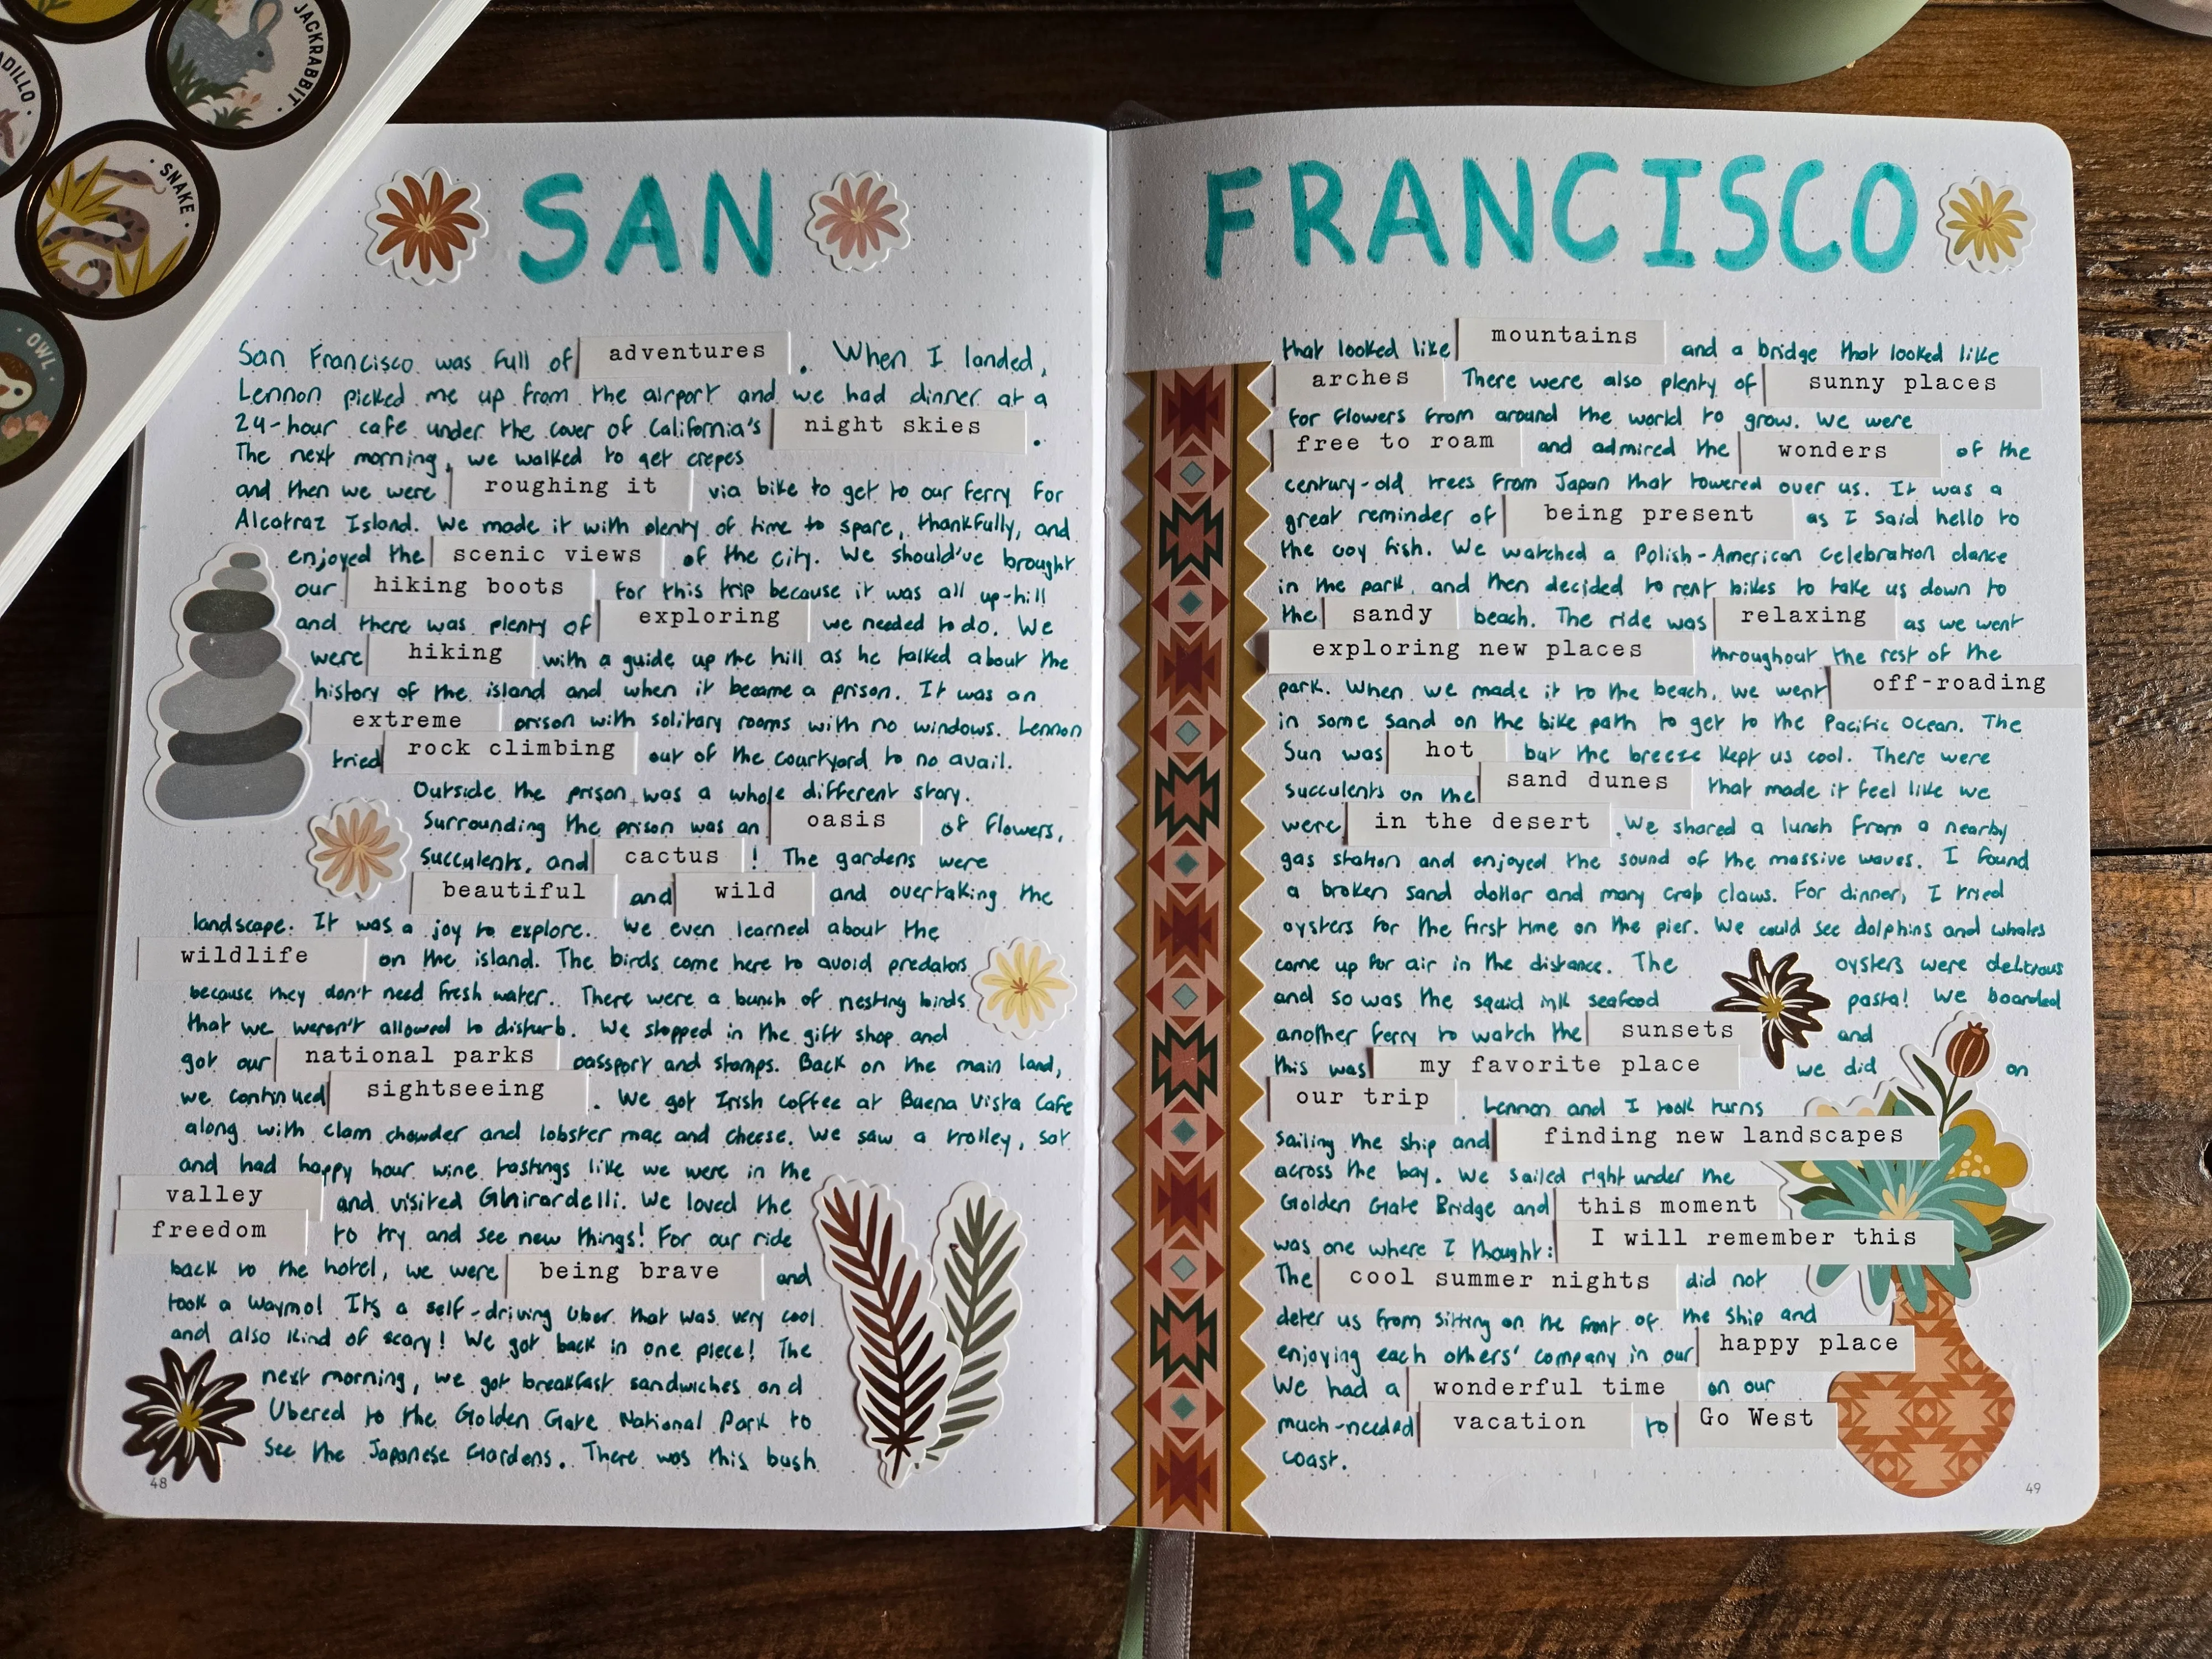 JACKRABBIT
ADILLO
SNAKE
OWL
SAN
San Francisco was full of adventures . When I landed,
Lennon picked me up from the airport and we had dinner at a
24-hour cafe under the cover of California's night skies .
The next morning, we walked to get crepes
and then we were roughing it via bike to get to our ferry for
Alcatraz Island. We made it with plenty of time to spare, thankfully, and
enjoyed the scenic views of the city. We should've brought
our hiking boots for this trip because it was all up-hill
and there was plenty of exploring we needed to do. We
were hiking with a guide up the hill as he talked about the
history of the island and when it became a prison. It was an
extreme prison with solitary rooms with no windows. Lennon
tried rock climbing out of the courtyard to no avail.
Outside the prison was a whole different story.
Surrounding the prison was an oasis of flowers,
succulents, and cactus ! The gardens were
beautiful and wild and overtaking the
landscape. It was a joy to explore. We even learned about the
wildlife on the island. The birds come here to avoid predators
because they don't need fresh water. There were a bunch of nesting birds
that we weren't allowed to disturb. We stopped in the gift shop and
got our national parks passport and stamps. Back on the main land,
we continued sightseeing . We got Irish coffee at Buena Vista Cafe
along with clam chowder and lobster mac and cheese. We saw a trolley, sat
and had happy hour wine tastings like we were in the
valley and visited Ghirardelli. We loved the
freedom to try and see new things! For our ride
back to the hotel, we were being brave and
took a Waymo! Its a self-driving Uber that was very cool
and also kind of scary! We got back in one piece! The
next morning, we got breakfast sandwiches and
Ubered to the Golden Gate National Park to
see the Japanese Gardens. There was this bush
48
FRANCISCO
that looked like mountains and a bridge that looked like
arches There were also plenty of sunny places
for flowers from around the world to grow. We were
free to roam and admired the wonders of the
century-old trees from Japan that towered over us. It was a
great reminder of being present as I said hello to
the coy fish. We watched a Polish-American celebration dance
in the park and then decided to rent bikes to take us down to
the sandy beach. The ride was relaxing as we went
exploring new places throughout the rest of the
park. When we made it to the beach, we went off-roading
in some sand on the bike path to get to the Pacific Ocean. The
Sun was hot but the breeze kept us cool. There were
succulents on the sand dunes that made it feel like we
were in the desert . We shared a lunch from a nearby
gas station and enjoyed the sound of the massive waves. I found
a broken sand dollar and many crab claws. For dinner, I tried
oysters for the first time on the pier. We could see dolphins and whales
come up for air in the distance. The oysters were delicious
and so was the squid ink seafood pasta! We boarded
another ferry to watch the sunsets and
this was my favorite place we did on
our trip . Lennon and I took turns
sailing the ship and finding new landscapes
across the bay. We sailed right under the
Golden Gate Bridge and this moment
was one where I thought: I will remember this
The cool summer nights did not
deter us from sitting on the front of the ship and
enjoying each others' company in our happy place
We had a wonderful time on our
much-needed vacation to Go West
coast.
49